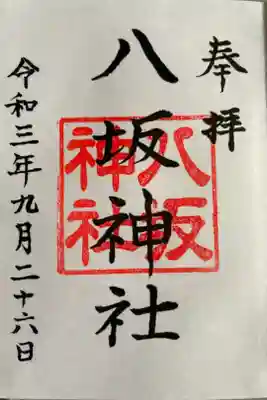 奉拝
八坂神社
八坂神社
令和三年九月二十六日